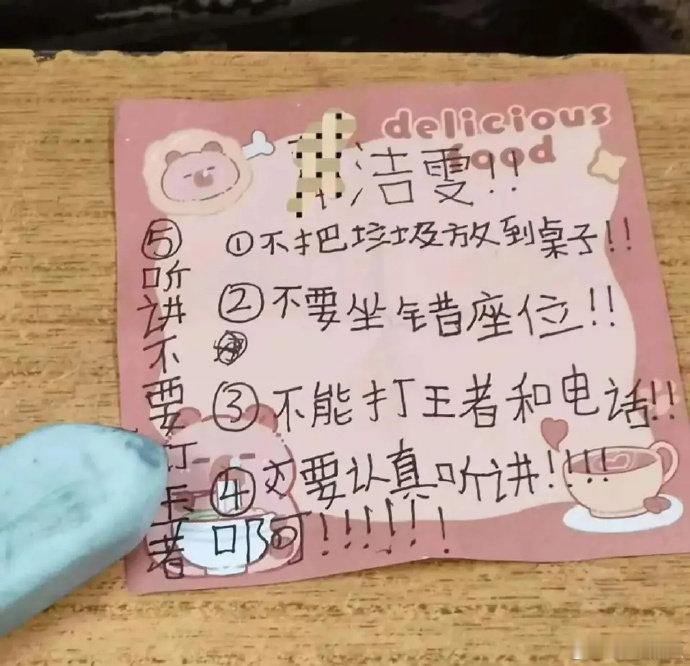 delicious
food
洁雯!!
①不把垃圾放到桌子!!
②不要坐错座位!!
③不能打王者和电话!!
④要认真听讲!!!!
⑤听讲不要打王者
啊!!!!!!